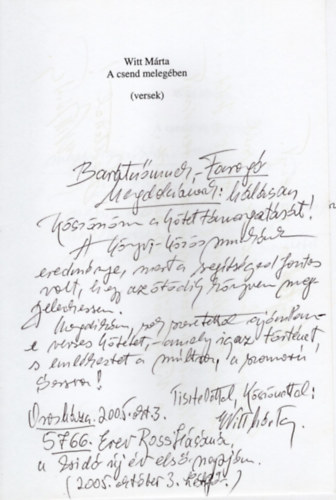 Witt Márta
A csend melegében
(versek)
Barátnőmnek, - Faragó
Magdolnának: hálásan
köszönöm a kötet támogatását!
A könyv közös munkánk
eredménye, mert a segítséged fontos
volt, hogy az ötödik könyvem meg
jelenhessen.
Magdikám, sok szeretettel ajánlom
e verses kötetet, - amely igaz történet,
s emlékeztet a múltra, a
Tisztelettel, Köszönettel:
Orosháza. 2005. okt. 3. Witt Márta
5766. Erev Ros Hásáná,
a zsidó új év első napján.
(2005. október 3.